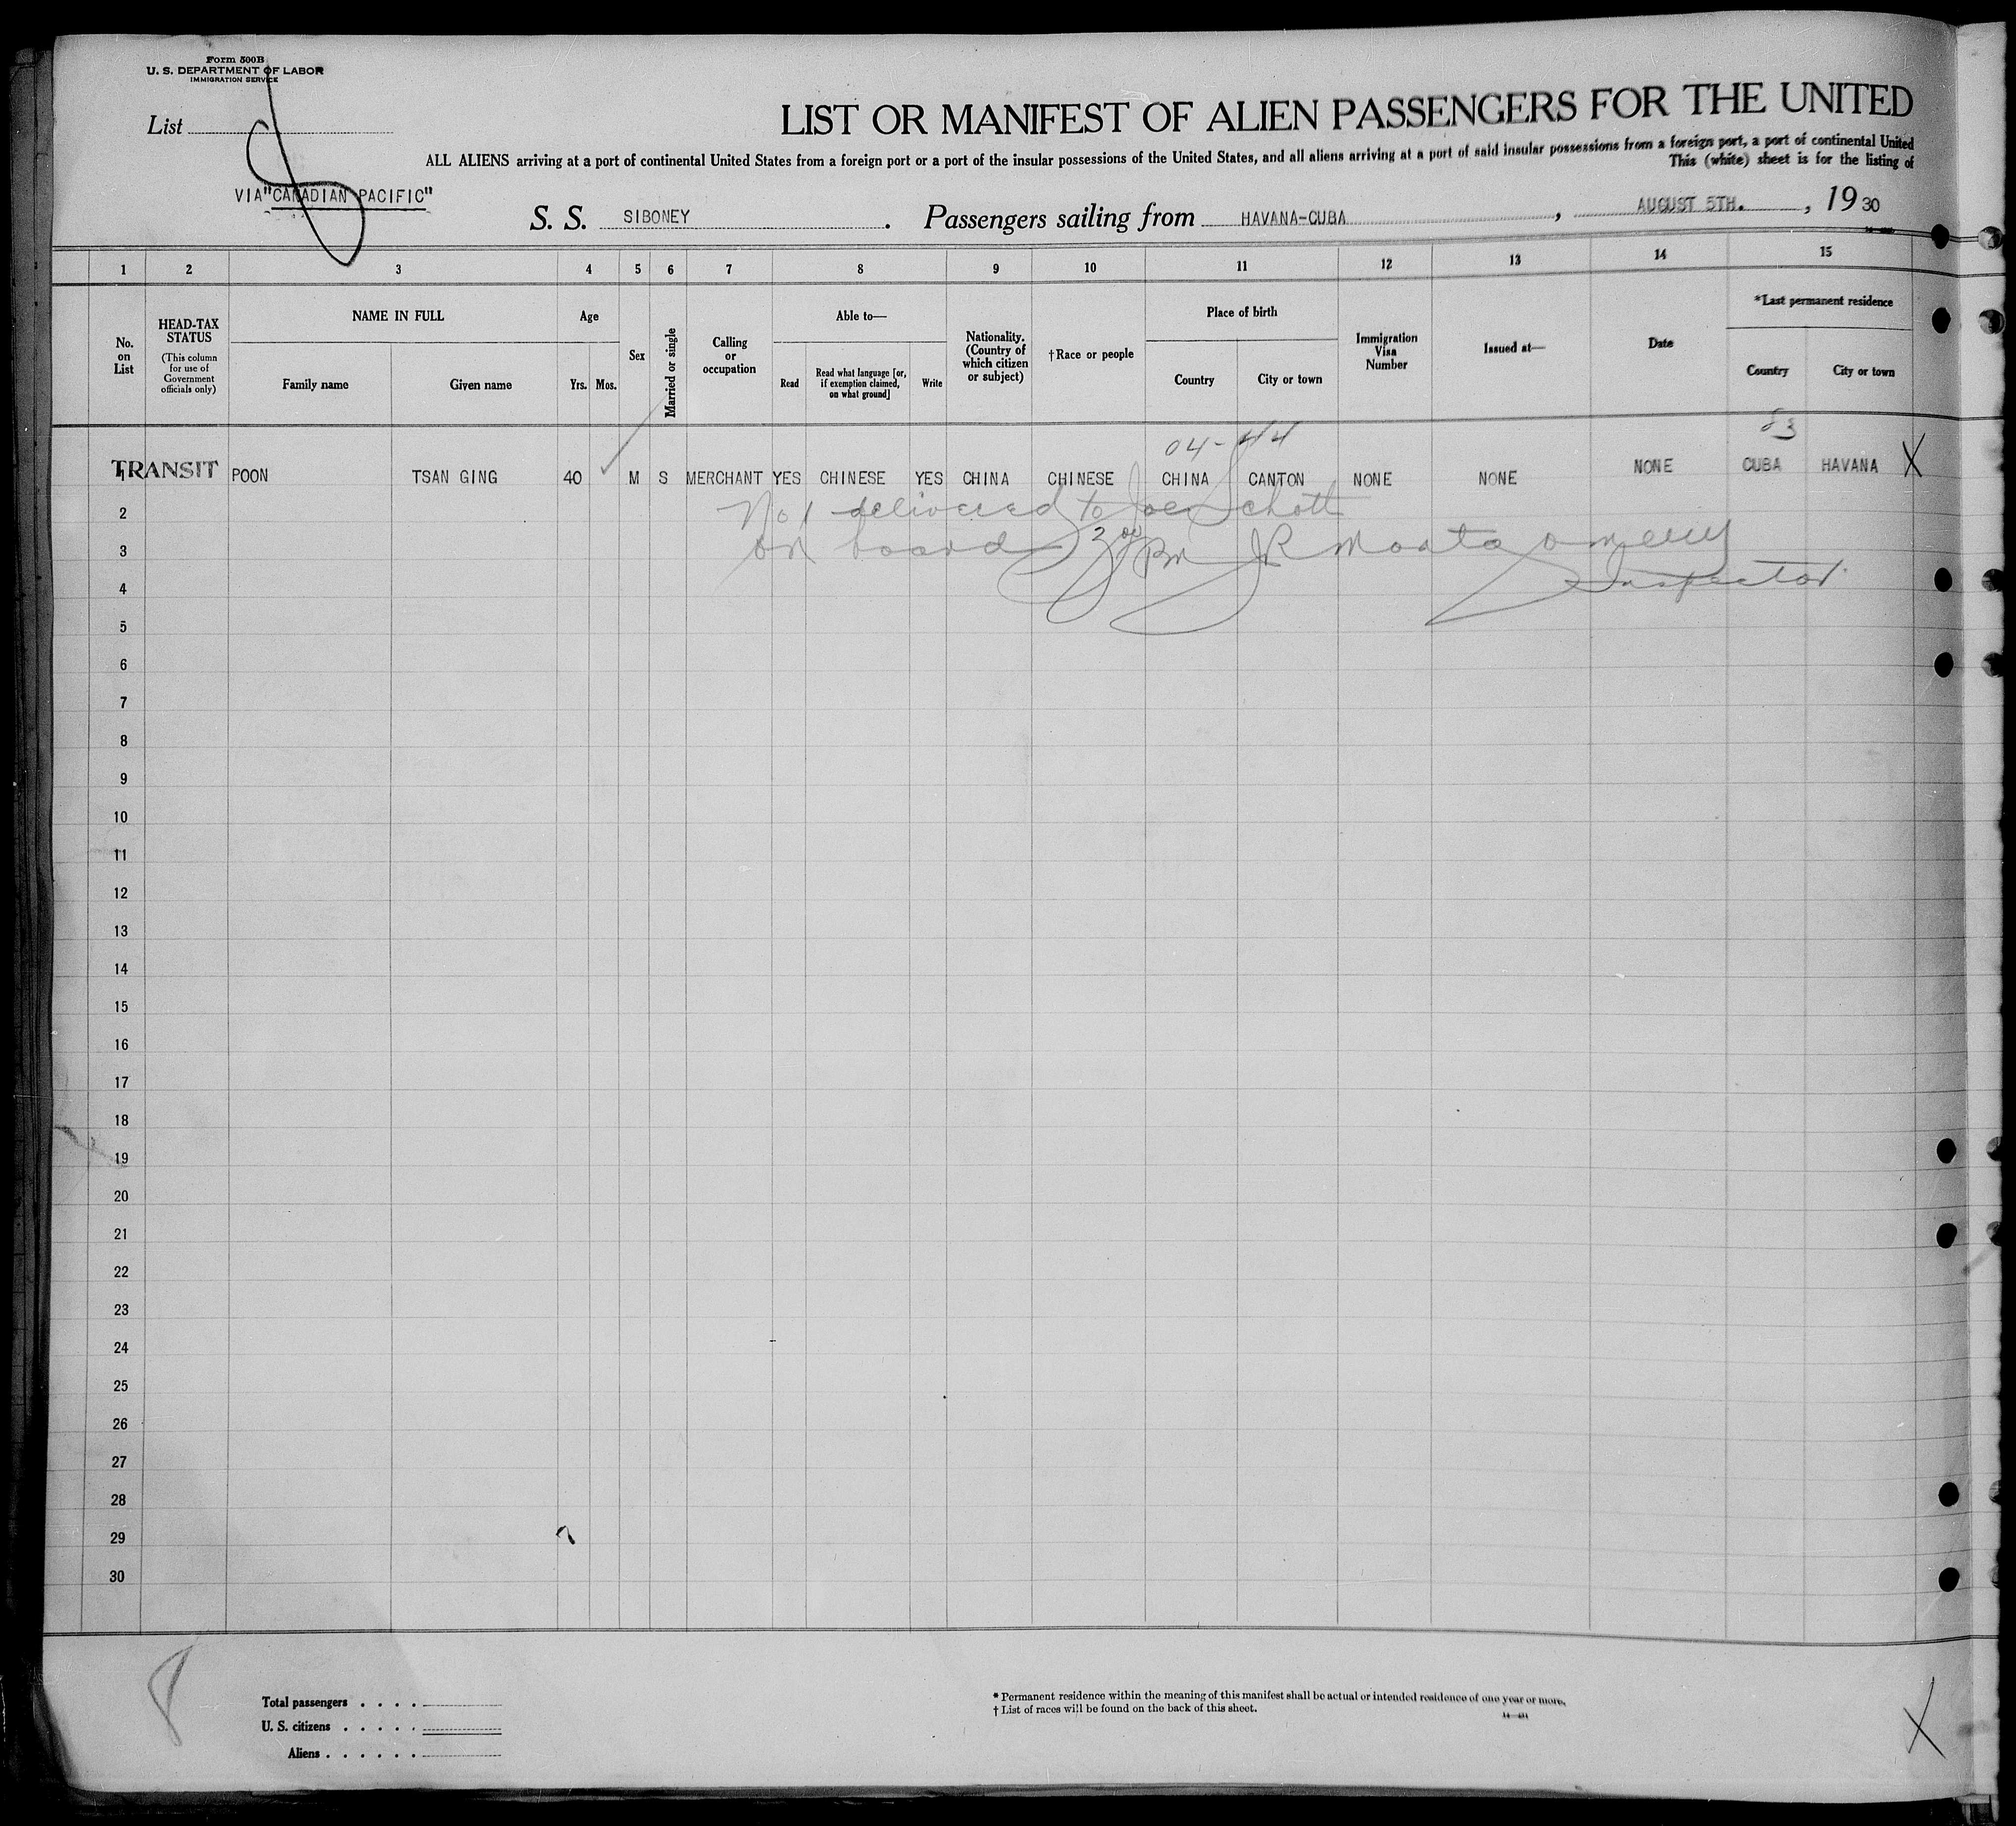 Form 500B
U. S. DEPARTMENT OF LABOR
IMMIGRATION SERVICE
List 8
LIST OR MANIFEST OF ALIEN PASSENGERS FOR THE UNITED
ALL ALIENS arriving at a port of continental United States from a foreign port or a port of the insular possessions of the United States, and all aliens arriving at a port of said insular possessions from a foreign port, a port of continental United
This (white) sheet is for the listing of
VIA"CANADIAN PACIFIC"
S. S. SIBONEY. Passengers sailing from HAVANA-CUBA, AUGUST 5TH., 1930
1 2 3 4 5 6 7 8 9 10 11 12 13 14 15
No. on List
HEAD-TAX STATUS
(This column for use of Government officials only)
NAME IN FULL
Family name Given name
Age
Yrs. Mos.
Sex
Married or single
Calling or occupation
Able to—
Read
Read what language [or, if exemption claimed, on what ground]
Write
Nationality. (Country of which citizen or subject)
†Race or people
Place of birth
Country City or town
Immigration Visa Number
Issued at—
Date
*Last permanent residence
Country City or town
04-44 83
1 TRANSIT POON TSAN GING 40 M S MERCHANT YES CHINESE YES CHINA CHINESE CHINA CANTON NONE NONE NONE CUBA HAVANA X
2 No 1 delivered to Joe Schott
3 on board 3 00 PM JR Montgomery
4 Inspector
5
6
7
8
9
10
11
12
13
14
15
16
17
18
19
20
21
22
23
24
25
26
27
28
29
30
8
Total passengers . . . .
U. S. citizens . . . . .
Aliens . . . . . .
* Permanent residence within the meaning of this manifest shall be actual or intended residence of one year or more.
† List of races will be found on the back of this sheet.
X